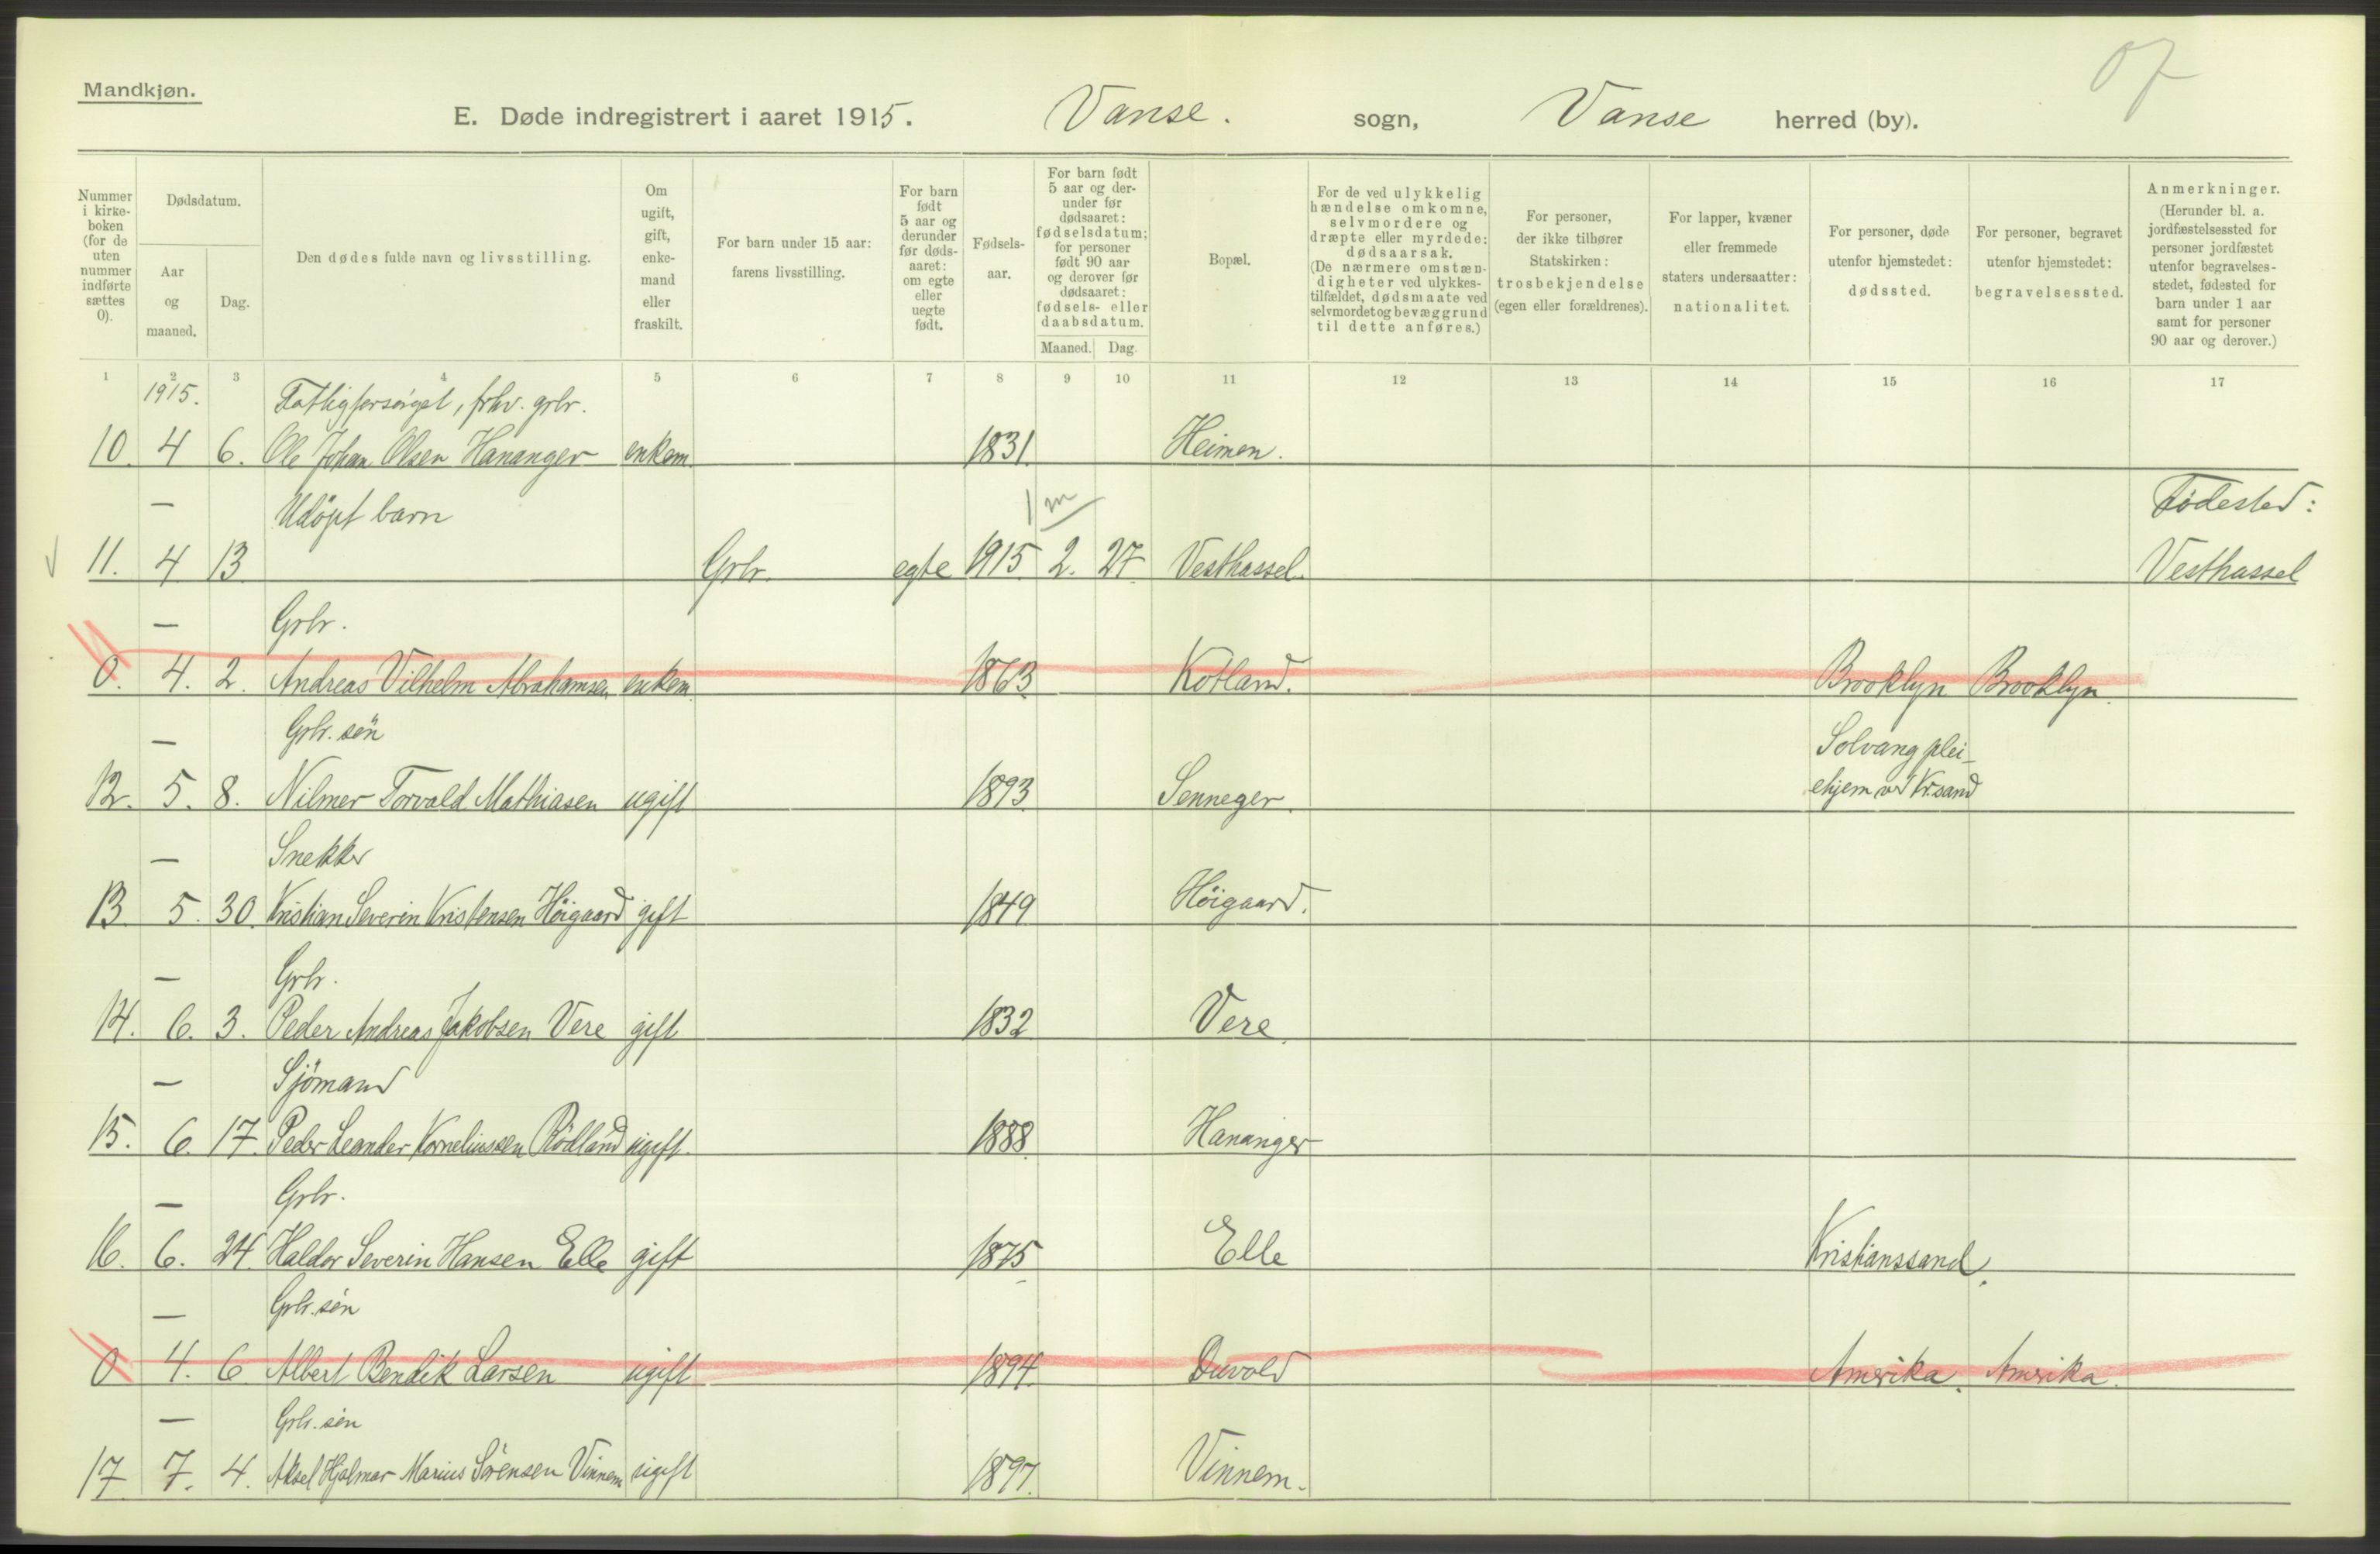 07
Mandkjøn.
E. Døde indregistrert i aaret 1915. Vanse. sogn, Vanse herred (by).
Nummer i kirke-boken (for de uten nummer indførte sættes 0).
Dødsdatum.
Aar og maaned.
Dag.
Den dødes fulde navn og livsstilling.
Om ugift, gift, enke-mand eller fraskilt.
For barn under 15 aar: farens livsstilling.
For barn født 5 aar og derunder før døds-aaret: om egte eller uegte født.
Fødsels-aar.
For barn født 5 aar og der-under før dødsaaret: fødselsdatum; for personer født 90 aar og derover før dødsaaret: fødsels- eller daabsdatum.
Maaned. Dag.
Bopæl.
For de ved ulykkelig hændelse omkomne, selvmordere og dræpte eller myrdede: dødsaarsak. (De nærmere omstæn-digheter ved ulykkes-tilfældet, dødsmaate ved selvmordet og bevæggrund til dette anføres.)
For personer, der ikke tilhører Statskirken: trosbekjendelse (egen eller forældrenes).
For lapper, kvæner eller fremmede staters undersaatter: nationalitet.
For personer, døde utenfor hjemstedet: dødssted.
For personer, begravet utenfor hjemstedet: begravelsessted.
Anmerkninger. (Herunder bl. a. jordfæstelsessted for personer jordfæstet utenfor begravelses-stedet, fødested for barn under 1 aar samt for personer 90 aar og derover.)
1 2 3 4 5 6 7 8 9 10 11 12 13 14 15 16 17
1915. Fattigforsørget, frhv. grbr.
10. 4 6. Ole Johan Olsen Hananger enkem. 1831. Heimen.
— Udöpt barn 1 m Födested:
11. 4 13 Grbr. egte 1915 2. 27 Vesthassel. Vesthassel
— Grbr.
0. 4. 2. Andreas Vilhelm Abrahamsen enkem. 1863 Kotland. Brooklyn Brooklyn.
— Grbr. sön Solvang plei-
12. 5. 8. Nilmer Torvald Mathiasen ugift 1893 Senneger. ehjem v/ Kr.sand
— Snekker
13. 5. 30. Kristian Severin Kristensen Höigaard gift 1849 Höigaard.
— Grbr.
14. 6. 3. Peder Andreas Jakobsen Vere gift 1832 Vere.
— Sjömand
15. 6. 17. Peder Leander Korneliussen Rödland ugift. 1888. Hananger
— Grbr.
16. 6. 24. Haldor Severin Hansen Elle gift 1875 Elle Kristianssand.
— Grbr. sön
0 4. 6 Albert Bendik Larsen ugift 1894. Duvold Amerika. Amerika.
— Grbr. sön
17 7. 4. Aksel Hjalmar Marius Sörensen Vinnem ugift 1897. Vinnem.